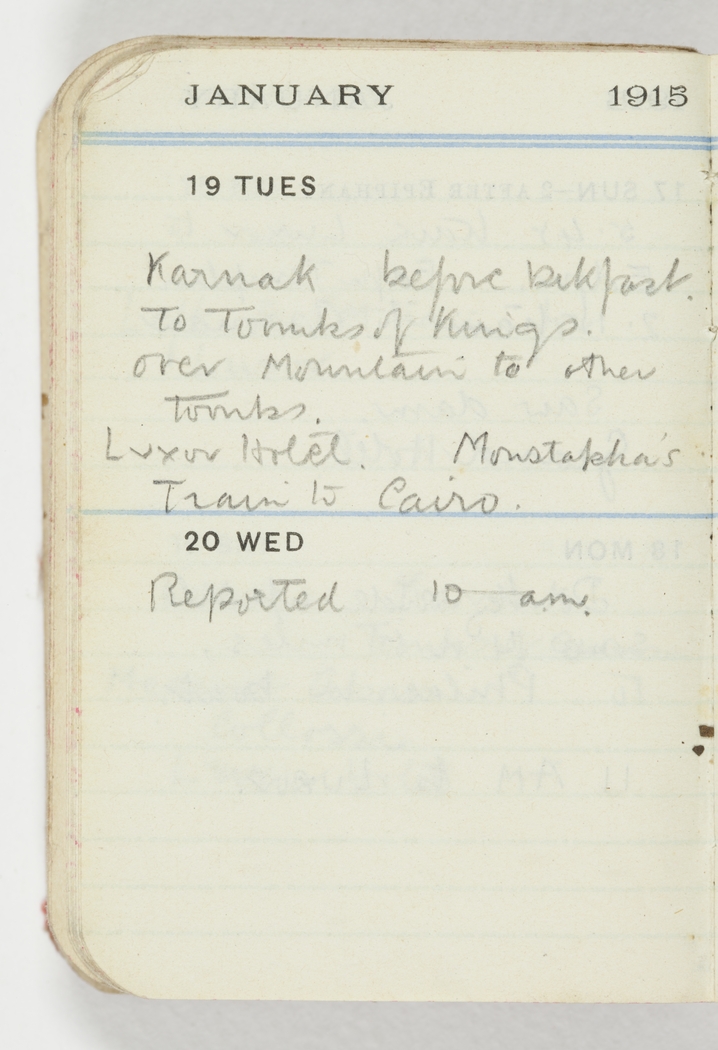 JANUARY 1915
19 TUES
Karnak before bekfast.
To Tombs of Kings.
over Mountain to other
tombs.
Luxor Hotel. Moustapha's
Train to Cairo.
20 WED
Reported 10 am.